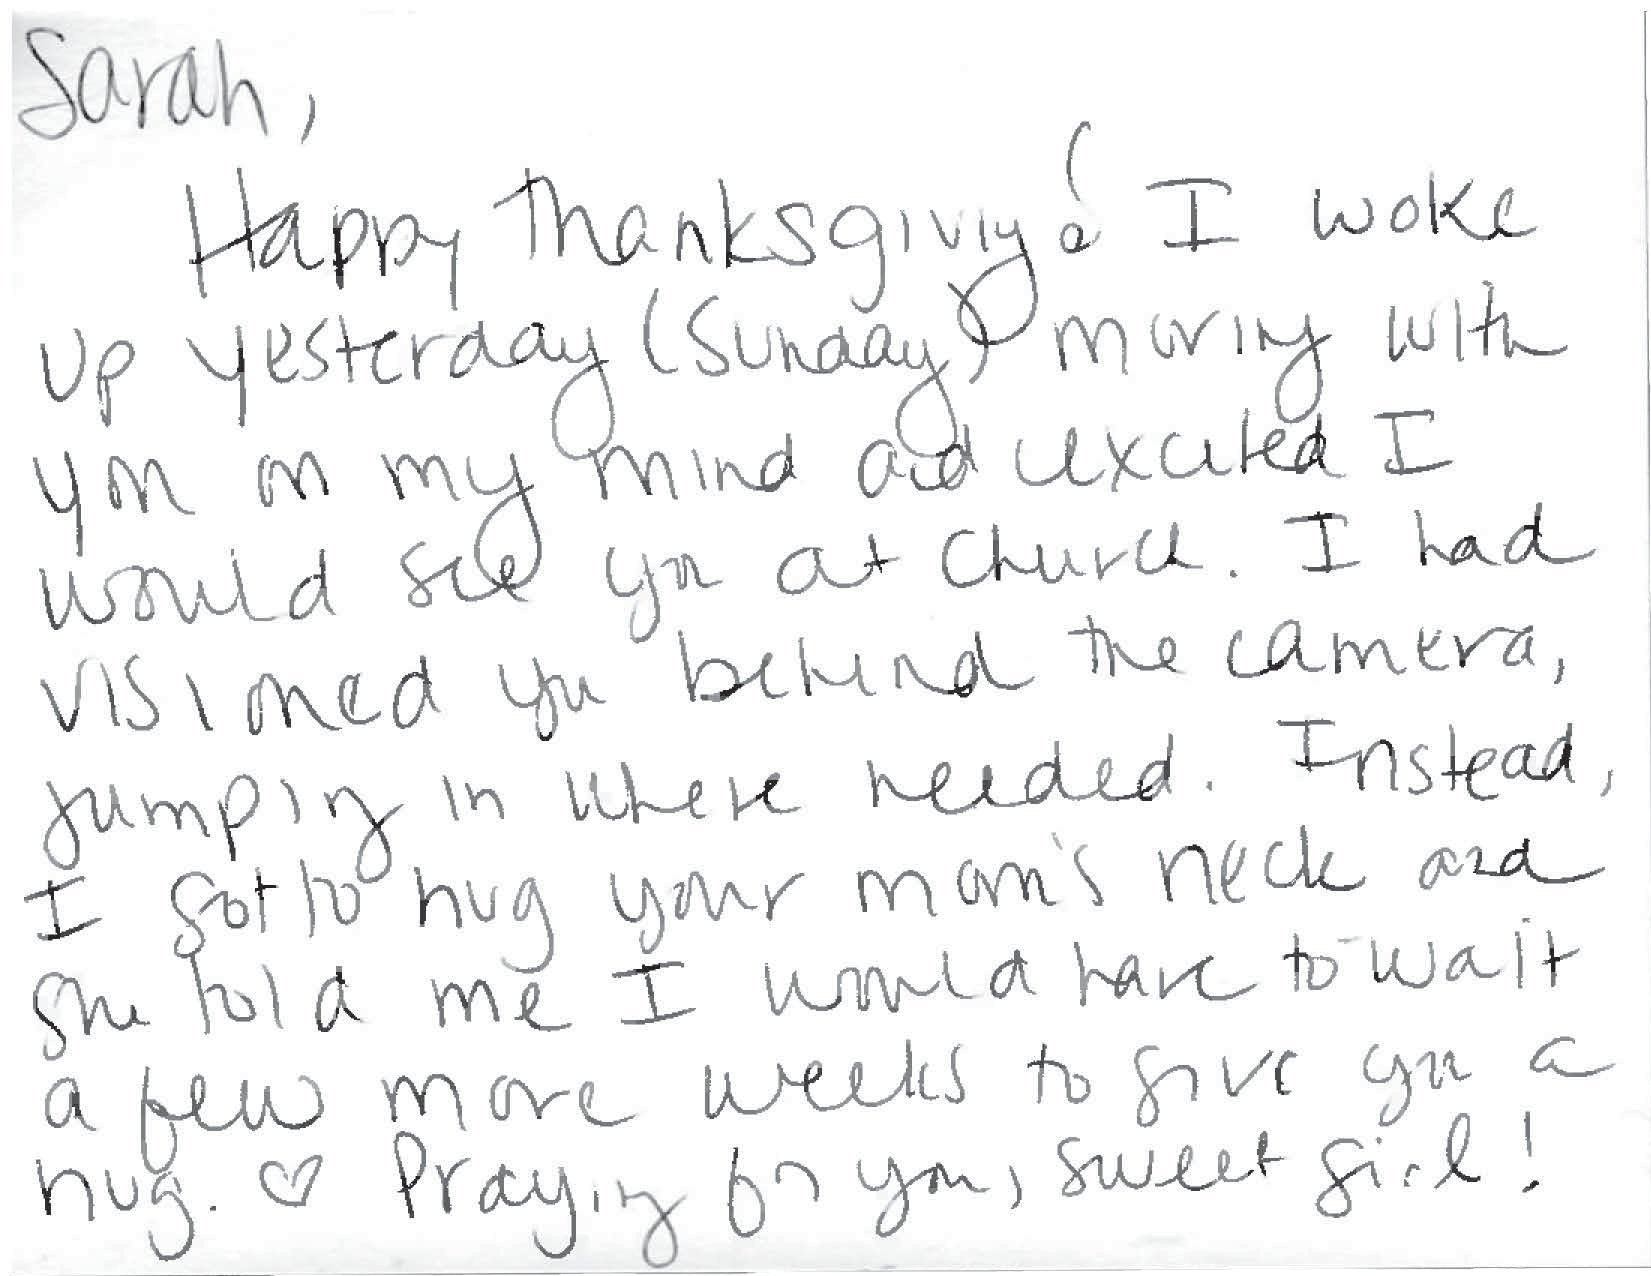 Sarah,
Happy Thanksgiving! I woke
up yesterday (Sunday) morning with
you on my mind and excited I
would see you at church. I had
visioned you behind the camera,
jumping in where needed. Instead,
I got to hug your mom's neck and
she told me I would have to wait
a few more weeks to give you a
hug. ♡ Praying for you, sweet girl!